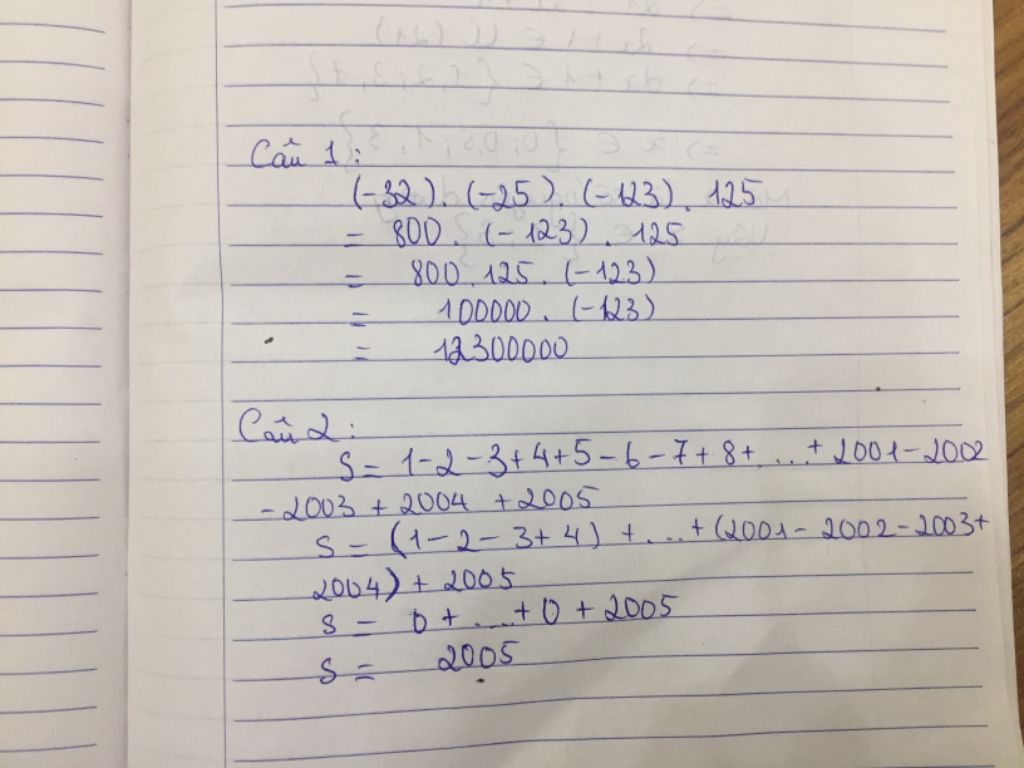 Câu 1:
(-32). (-25). (-123). 125
= 800. (-123). 125
= 800.125. (-123)
= 100000. (-123)
= 12300000
Câu 2:
S = 1-2-3+4+5-6-7+8+...+ 2001-2002
-2003 + 2004 + 2005
S = (1-2-3+4) +...+ (2001-2002-2003+
2004) + 2005
S = 0 +...+0 + 2005
S = 2005